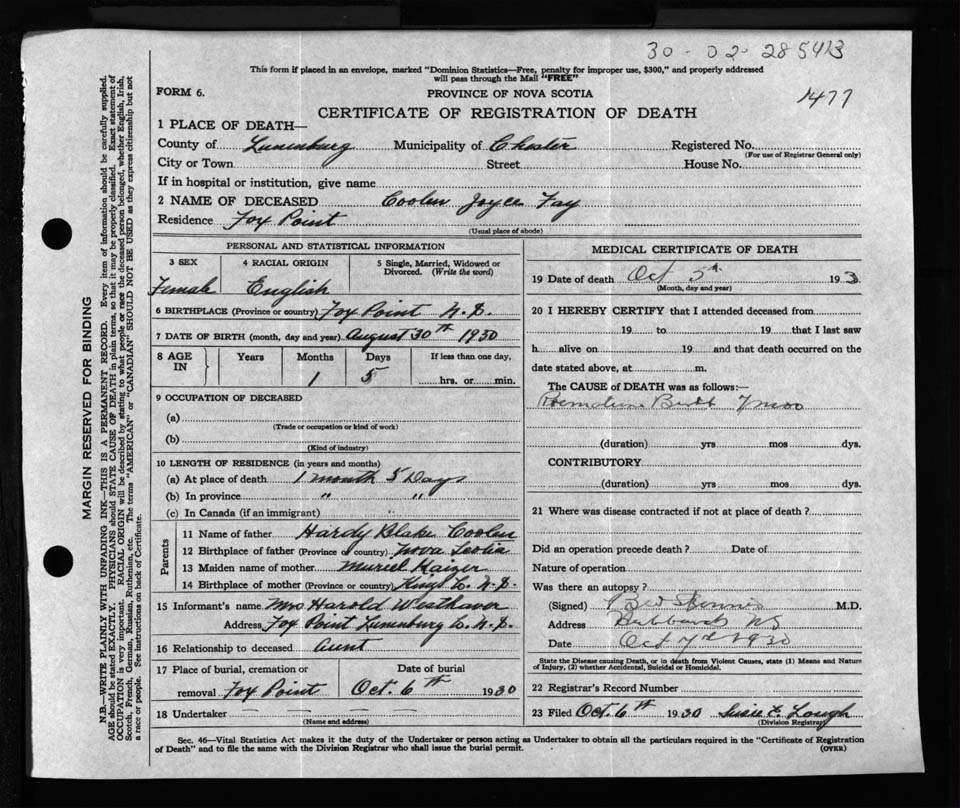 30-02-285413
This form if placed in an envelope, marked "Dominion Statistics—Free, penalty for improper use, $300," and properly addressed
will pass through the Mail "FREE"
FORM 6.
PROVINCE OF NOVA SCOTIA
1477
CERTIFICATE OF REGISTRATION OF DEATH
1 PLACE OF DEATH—
County of Lunenburg Municipality of Chester Registered No.
(For use of Registrar General only)
City or Town Street House No.
If in hospital or institution, give name
2 NAME OF DECEASED Coolen Joyce Fay
Residence Fox Point
(Usual place of abode)
PERSONAL AND STATISTICAL INFORMATION
3 SEX 4 RACIAL ORIGIN 5 Single, Married, Widowed or
Divorced. (Write the word)
Female English
6 BIRTHPLACE (Province or country) Fox Point N.S.
7 DATE OF BIRTH (month, day and year) August 30th 1930
8 AGE IN Years Months Days If less than one day,
1 5 hrs. or min.
9 OCCUPATION OF DECEASED
(a)
(Trade or occupation or kind of work)
(b)
(Kind of industry)
10 LENGTH OF RESIDENCE (in years and months)
(a) At place of death 1 month 5 Days
(b) In province " "
(c) In Canada (if an immigrant) "
Parents
11 Name of father Hardy Blake Coolen
12 Birthplace of father (Province or country) Nova Scotia
13 Maiden name of mother Muriel Kaizer
14 Birthplace of mother (Province or country) Kings Co. N.S.
15 Informant's name Mrs Harold Westhaver
Address Fox Point Lunenburg Co. N.S.
16 Relationship to deceased aunt
17 Place of burial, cremation or Date of burial
removal Fox Point Oct. 6th 1930
18 Undertaker
(Name and address)
MEDICAL CERTIFICATE OF DEATH
19 Date of death Oct 5th 193
(Month, day and year)
20 I HEREBY CERTIFY that I attended deceased from
19 to 19 that I last saw
h alive on 19 and that death occurred on the
date stated above, at m.
The CAUSE of DEATH was as follows:—
Premature Birth 7 mos
(duration) yrs mos dys.
CONTRIBUTORY
(duration) yrs mos dys.
21 Where was disease contracted if not at place of death?
Did an operation precede death? Date of
Nature of operation
Was there an autopsy?
(Signed) M.D.
Address Hubbards NS
Date Oct 7th 1930
State the Disease causing Death, or in death from Violent Causes, state (1) Means and Nature
of Injury, (2) whether Accidental, Suicidal or Homicidal.
22 Registrar's Record Number
23 Filed Oct. 6th 1930 Susie E. Lough
(Division Registrar)
Sec. 46—Vital Statistics Act makes it the duty of the Undertaker or person acting as Undertaker to obtain all the particulars required in the "Certificate of Registration
of Death" and to file the same with the Division Registrar who shall issue the burial permit. (OVER)
MARGIN RESERVED FOR BINDING
N.B.—WRITE PLAINLY WITH UNFADING INK—THIS IS A PERMANENT RECORD. Every item of information should be carefully supplied.
AGE should be stated EXACTLY. PHYSICIANS should STATE CAUSE OF DEATH in plain terms, so that it may be properly classified. Exact statement of
OCCUPATION is very important. RACIAL ORIGIN will be described by stating to what people or race the deceased person belonged, whether English, Irish,
Scotch, French, German, Russian, Ruthenian, etc. The terms "AMERICAN" or "CANADIAN" SHOULD NOT BE USED as they express citizenship but not
a race or people. See instructions on back of Certificate.